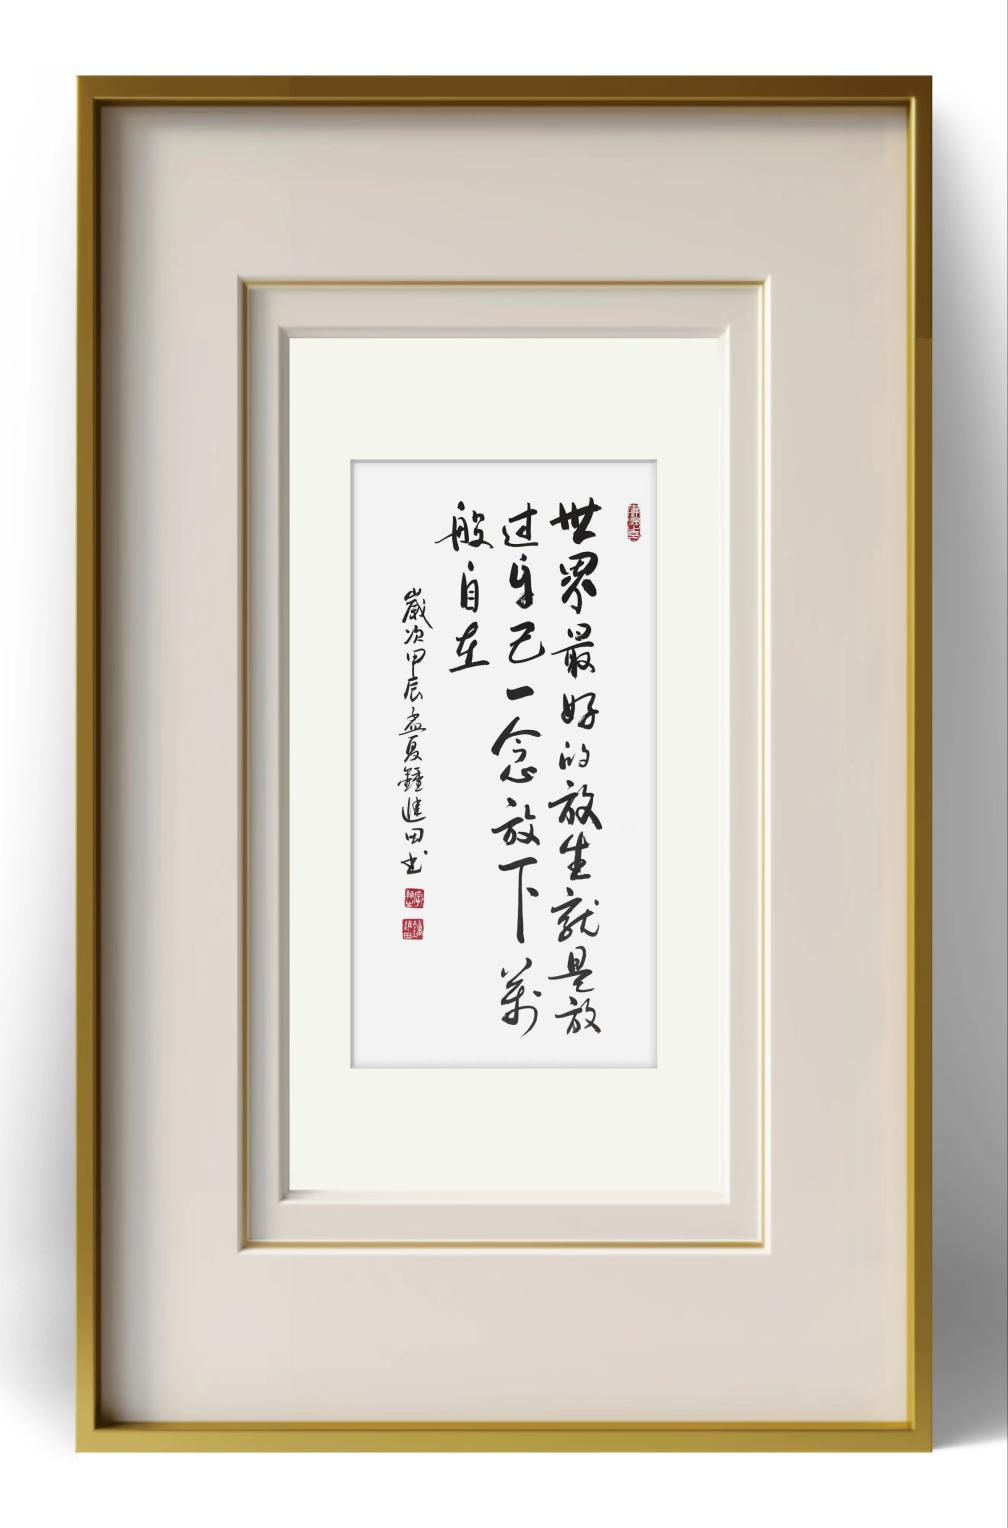 世界最好的放生就是放
过自己一念放下万
般自在
歲次甲辰孟夏鐘進田书